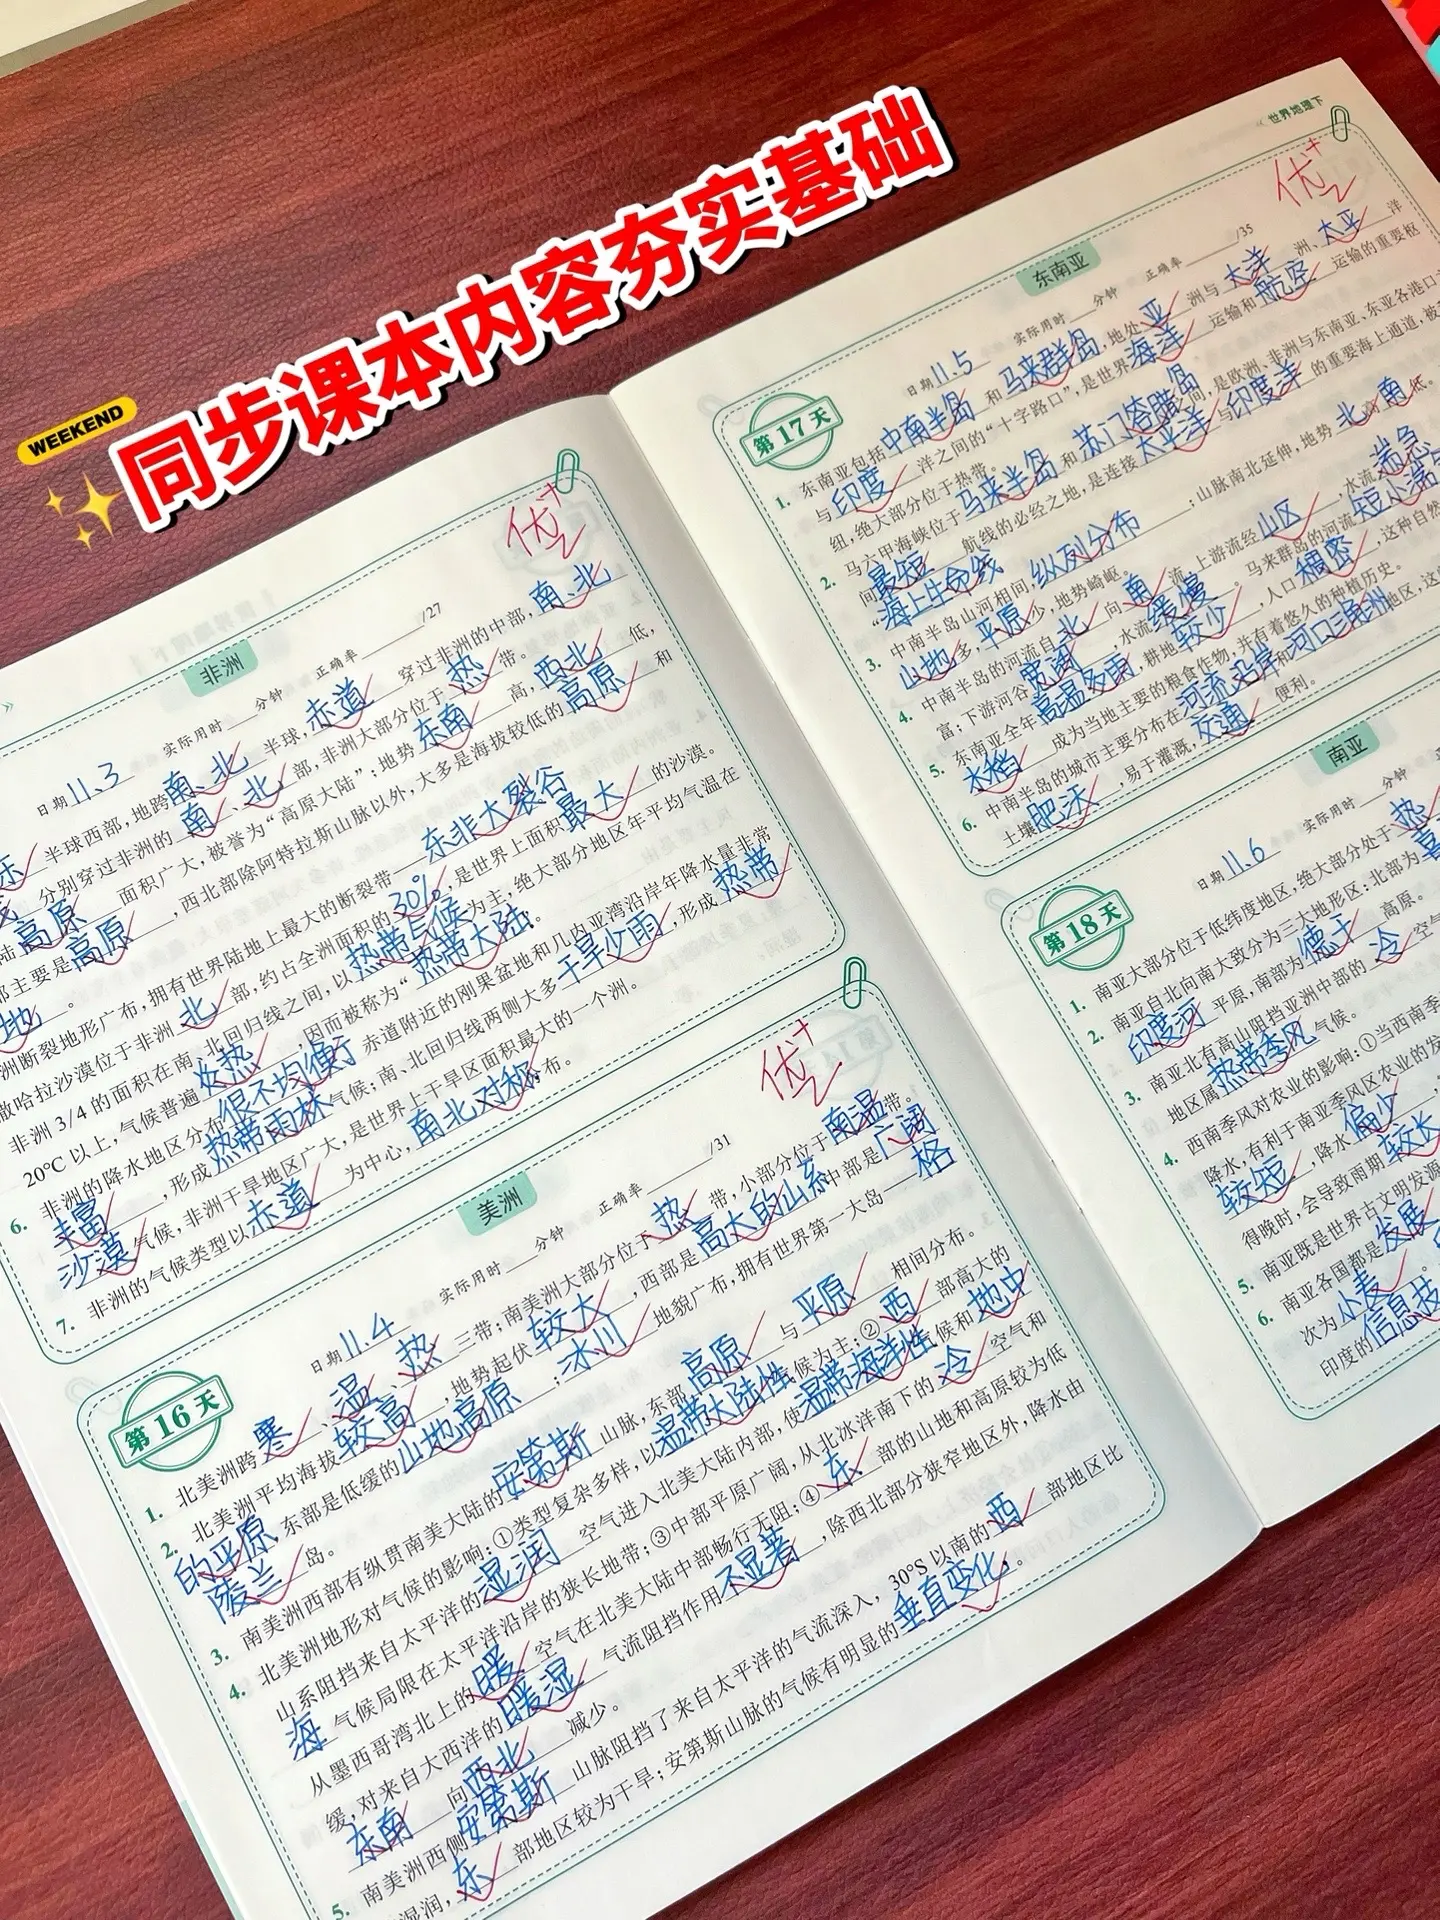 世界地理下
同步课本内容夯实基础
WEEKEND
优+
非洲
日期11.3 实际用时____分钟 正确率____/27
半球西部,地跨南、北半球,赤道穿过非洲的中部,南、北
分别穿过非洲的南、北部,非洲大部分位于热带。
高原面积广大,被誉为“高原大陆”;地势东南高,西北低,
部主要是高原,西北部除阿特拉斯山脉以外,大多是海拔较低的高原和
地。
洲断裂地形广布,拥有世界陆地上最大的断裂带东非大裂谷
撒哈拉沙漠位于非洲北部,约占全洲面积的30%,是世界上面积最大的沙漠。
非洲3/4的面积在南、北回归线之间,以热带气候为主,绝大部分地区年平均气温在
20℃以上,气候普遍炎热,因而被称为“热带大陆。
6. 非洲的降水地区分布很不均衡赤道附近的刚果盆地和几内亚湾沿岸年降水量非常
丰富,形成热带雨林气候;南、北回归线两侧大多干旱少雨,形成热带
沙漠气候,非洲干旱地区广大,是世界上干旱区面积最大的一个洲。
7. 非洲的气候类型以赤道为中心,南北对称分布。
优+
美洲
第16天
日期11.4 实际用时____分钟 正确率____/31
1. 北美洲跨寒、温、热三带;南美洲大部分位于热带,小部分位于南温带。
2. 北美洲平均海拔较高,地势起伏较大,西部是高大的山系中部是广阔
的平原东部是低缓的山地高原;冰川地貌广布,拥有世界第一大岛——格
陵兰岛。
3. 南美洲西部有纵贯南美大陆的安第斯山脉,东部高原与平原相间分布。
4. 北美洲地形对气候的影响:①类型复杂多样,以温带大陆性气候为主;②西部高大的
山系阻挡来自太平洋的湿润空气进入北美大陆内部,使温带海洋性气候和地中
海气候局限在太平洋沿岸的狭长地带;③中部平原广阔,从北冰洋南下的冷空气和
从墨西哥湾北上的暖空气在北美大陆中部畅行无阻;④东部的山地和高原较为低
缓,对来自大西洋的暖湿气流阻挡作用不显著,除西北部分狭窄地区外,降水由
东南向西北减少。
5. 南美洲西侧安第斯山脉阻挡了来自太平洋的气流深入,30°S以南的西部地区比
湿润,东部地区较为干旱;安第斯山脉的气候有明显的垂直变化。
优+
东南亚
第17天
日期11.5 实际用时____分钟 正确率____/35
1. 东南亚包括中南半岛和马来群岛,地处亚洲与大洋洲、太平洋
与印度洋之间的“十字路口”,是世界海洋运输和航空运输的重要枢
纽,绝大部分位于热带。
2. 马六甲海峡位于马来半岛和苏门答腊岛之间,是欧洲、非洲与东南亚、东亚各港口
间最短航线的必经之地,是连接太平洋与印度洋的重要海上通道,被
“海上生命线
3. 中南半岛山河相间,纵列分布;山脉南北延伸,地势北高南低。
山地多,平原少,地势崎岖。
4. 中南半岛的河流自北向南流,上游流经山区,水流湍急
富;下游河谷宽阔,水流缓慢。马来群岛的河流短小
5. 东南亚全年高温多雨,耕地较少,人口稠密,这种自然
水稻成为当地主要的粮食作物,并有着悠久的种植历史。
6. 中南半岛的城市主要分布在河流沿岸和河口三角洲地区,这
土壤肥沃,易于灌溉,交通便利。
南亚
第18天
日期11.6 实际用时____分钟
1. 南亚大部分位于低纬度地区,绝大部分处于热
2. 南亚自北向南大致分为三大地形区;北部为喜
印度河平原,南部为德干高原。
3. 南亚北有高山阻挡亚洲中部的冷空气
地区属热带季风气候。
4. 西南季风对农业的影响:①当西南季
降水,有利于南亚季风区农业的发
较短,降水偏少
得晚时,会导致雨期较长
5. 南亚既是世界古文明发源
6. 南亚各国都是发展
次为小麦。
印度的信息技